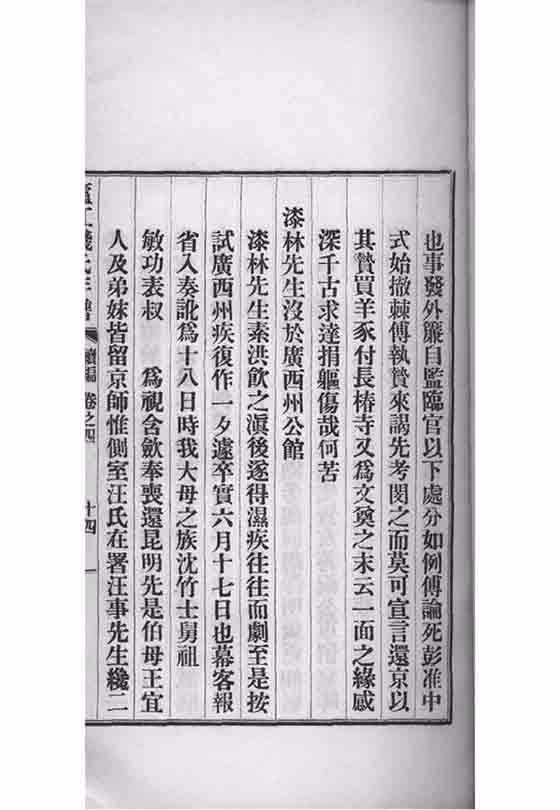 也事發外簾自監臨官以下處分如例傅論死彭准中
式始撤棘傅執贄來謁先考閔之而莫可宣言還京以
其贄買羊豕付長椿寺又爲文奠之末云一面之緣感
深千古求達捐軀傷哉何苦
漆林先生沒於廣西州公館
漆林先生素洪飮之滇後遂得濕疾往往而劇至是按
試廣西州疾復作一夕遽卒實六月十七日也幕客報
省入奏訛爲十八日時我大母之族沈竹士舅祖
敏功表叔 爲視含歛奉喪還昆明先是伯母王宜
人及弟妹皆留京師惟側室汪氏在署汪事先生纔二
錢氏年譜 續編 卷之四 十四